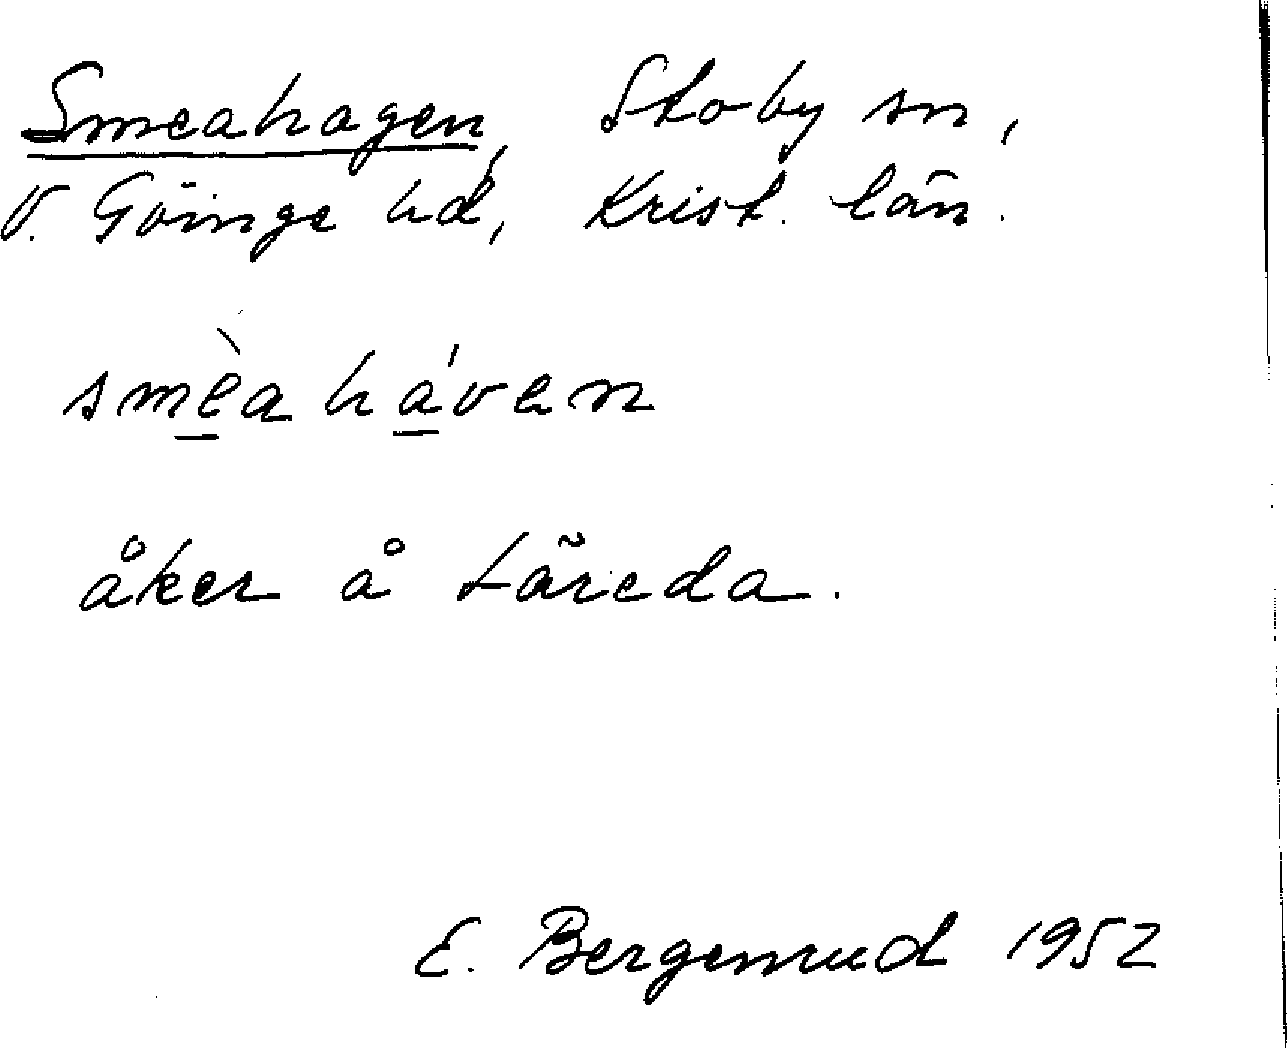 Smeahagen, Stoby sn,
V. Göinge hd, Krist. län.
smèaháven
åker å Läreda.
E. Bergenrud 1952